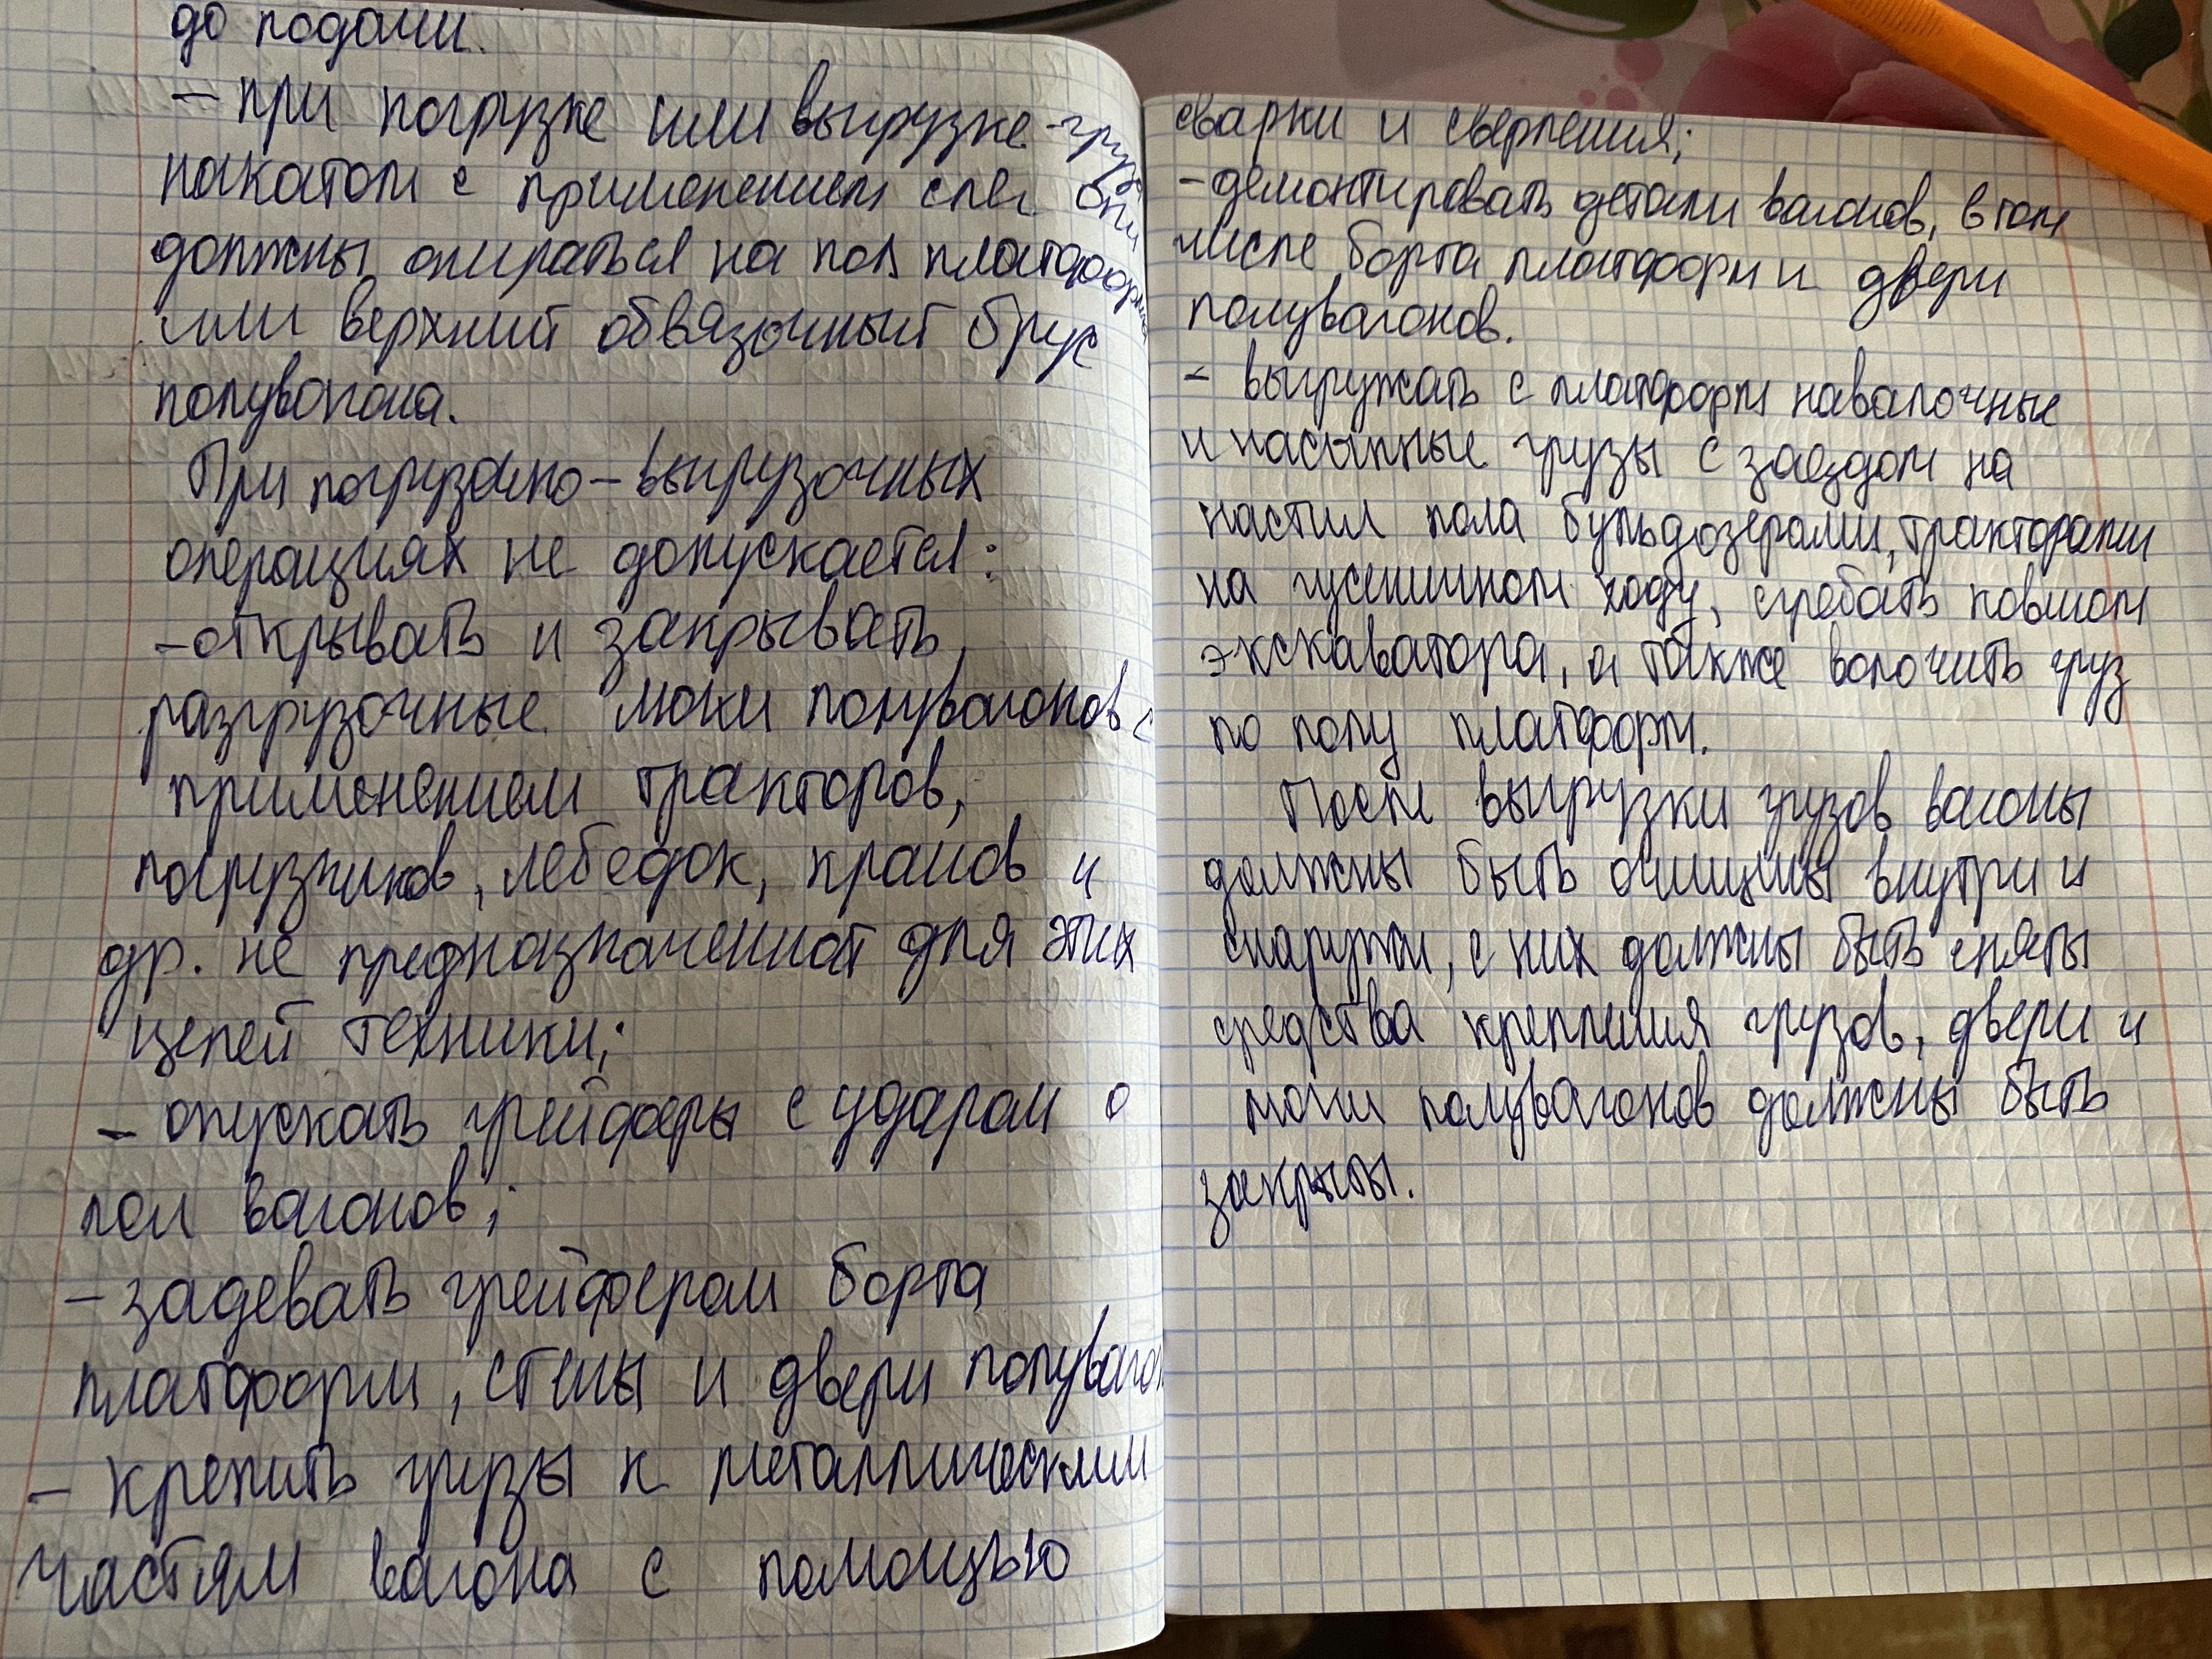 до подачи.
– при погрузке или выгрузке груз
накатом с применением слег они
должны опираться на пол платформы
или верхний обвязочный брус
полувагона.
При погрузочно – выгрузочных
операциях не допускается:
– открывать и закрывать
разгрузочные люки полувагонов с
применением тракторов,
погрузчиков, лебедок, кранов и
др. не предназначенной для этих
целей техники;
– опускать грейферы с ударом о
пол вагонов;
– задевать грейфером борта
платформ, стены и двери полуваго
– крепить грузы к металлическим
частям вагона с помощью
сварки и сверления;
– демонтировать детали вагонов, в том
числе борта платформ и двери
полувагонов.
– выгружать с платформ навалочные
и насыпные грузы с заездом на
настил пола бульдозерами, тракторами
на гусеничном ходу, сгребать ковшом
экскаватора, а также волочить груз
по полу платформ.
После выгрузки грузов вагоны
должны быть очищены внутри и
снаружи, с них должны быть сняты
средства крепления грузов, двери и
люки полувагонов должны быть
закрыты.